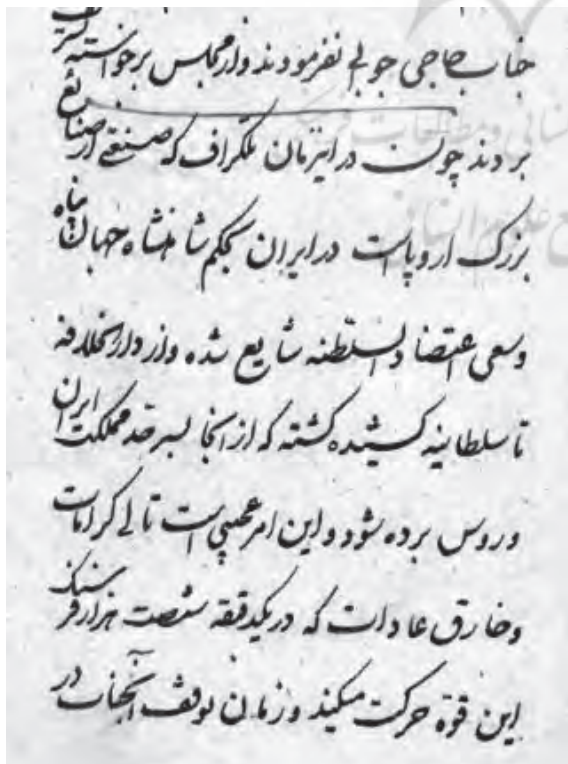 جناب حاجی جوابی نفرمودند و از مجلس برخواسته
بردند چون در این زمان تلگراف که صنعتی از صنایع
بزرک اروپاست در ایران بحکم شاهنشاه جهان پناه
وسعی اعتضاد السلطنه شایع شده و از دارالخلافه
تا سلطانیه کشیده کشته که از انجا بسرحد مملکت ایران
وروس برده شود و این امر عجیبی است تالی کرامات
وخارق عادات که در یکدقیقه شصت هزار فرسنک
این قوّه حرکت میکند و زمان توقف آنجناب در